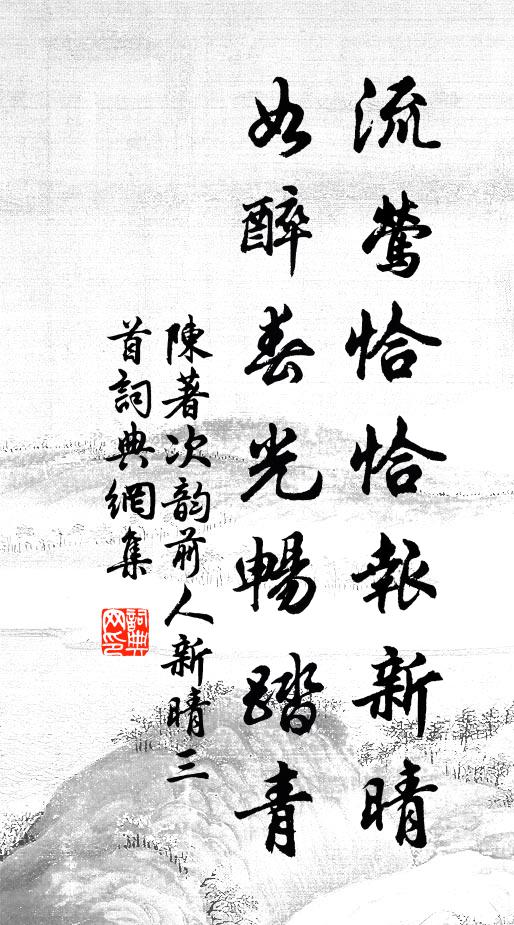 流鶯恰恰報新晴
如醉春光暢踏青
陳著次韵前人新晴三
首詞典網集
詞典
网印